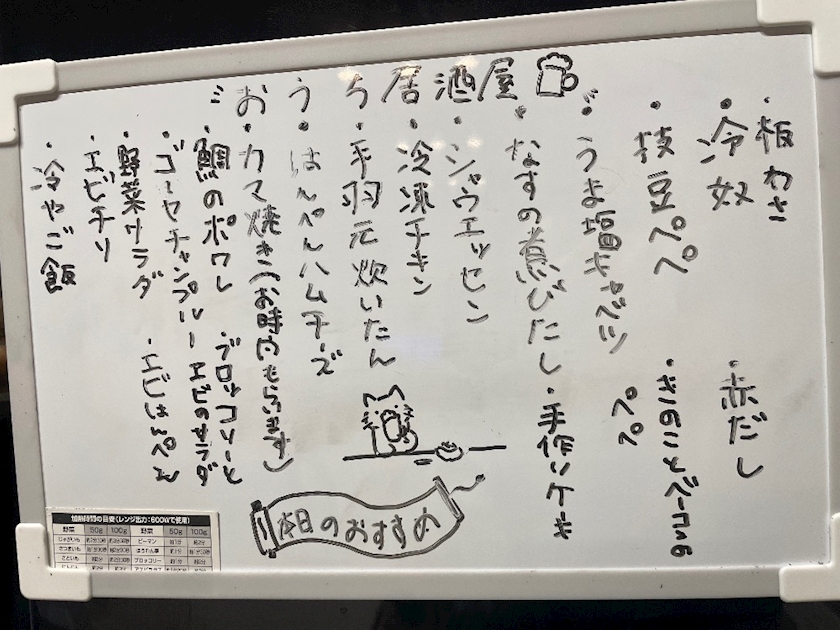 おうち居酒屋
・板わさ
・冷奴
・枝豆ペペ
・うま塩キャベツ
・なすの煮びたし
・シャウエッセン
・冷凍チキン
・手羽元炊いたん
・はんぺんハムチーズ
・カマ焼き(お時間もらいます)
・鯛のポワレ
・ゴーヤチャンプルー
・野菜サラダ
・エビチリ
・冷やご飯
・赤だし
・きのことベーコンの
ペペ
・手作りケーキ
・ブロッコリーと
エビのサラダ
・エビはんぺん
本日のおすすめ
加熱時間の目安(レンジ出力:600Wで使用)
野菜 50g 100g 野菜 50g 100g
じゃがいも ピーマン
さつまいも ほうれん草
さといも ブロッコリー